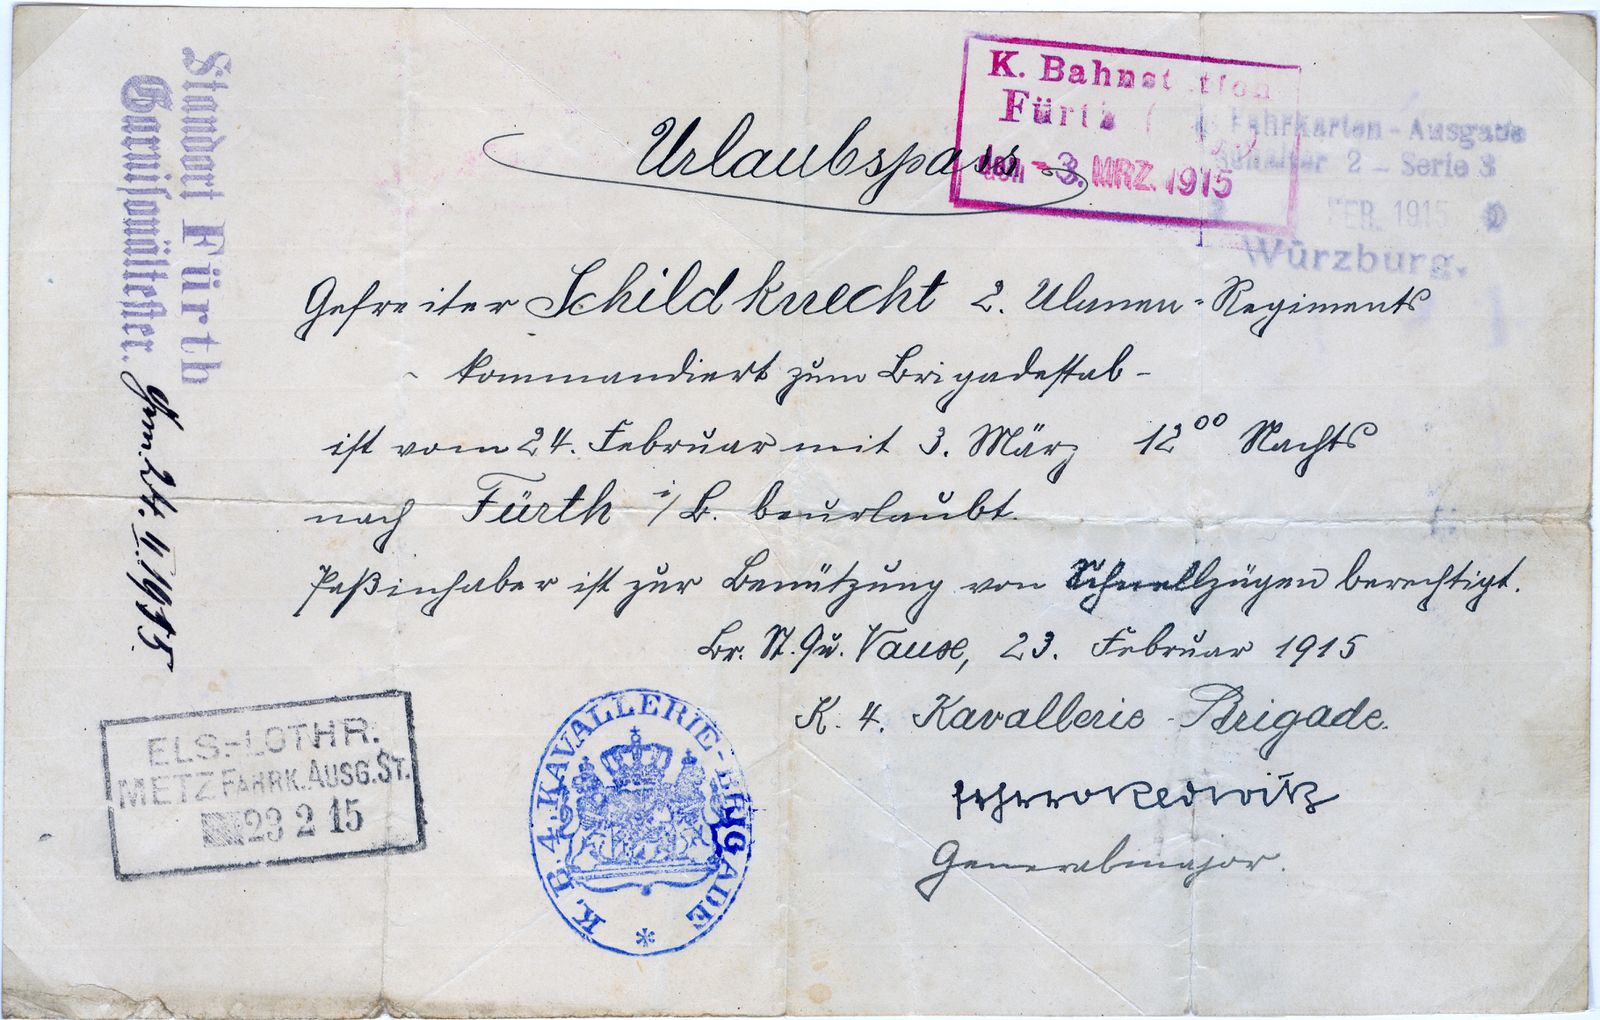 Urlaubspass
K. Bahnstation
Fürth
den - 3. MRZ. 1915
Fahrkarten - Ausgabe
Schalter 2 - Serie 3
FEB. 1915
Würzburg.
Gefreiter Schildknecht 2. Ulanen-Regiments
- kommandiert zum Brigadestab -
ist vom 24. Februar mit 3. März 12⁰⁰ Nachts
nach Fürth i/B. beurlaubt.
Paßinhaber ist zur Benützung von Schnellzügen berechtigt.
Br. St. Qu. Vaux, 23. Februar 1915
K. 4. Kavallerie-Brigade.
Generalmajor.
Standort Fürth
Garnisonältester.
ELS.-LOTHR.
METZ FAHRK. AUSG. ST.
23 2 15
K. B. 4. KAVALLERIE-BRIGADE *